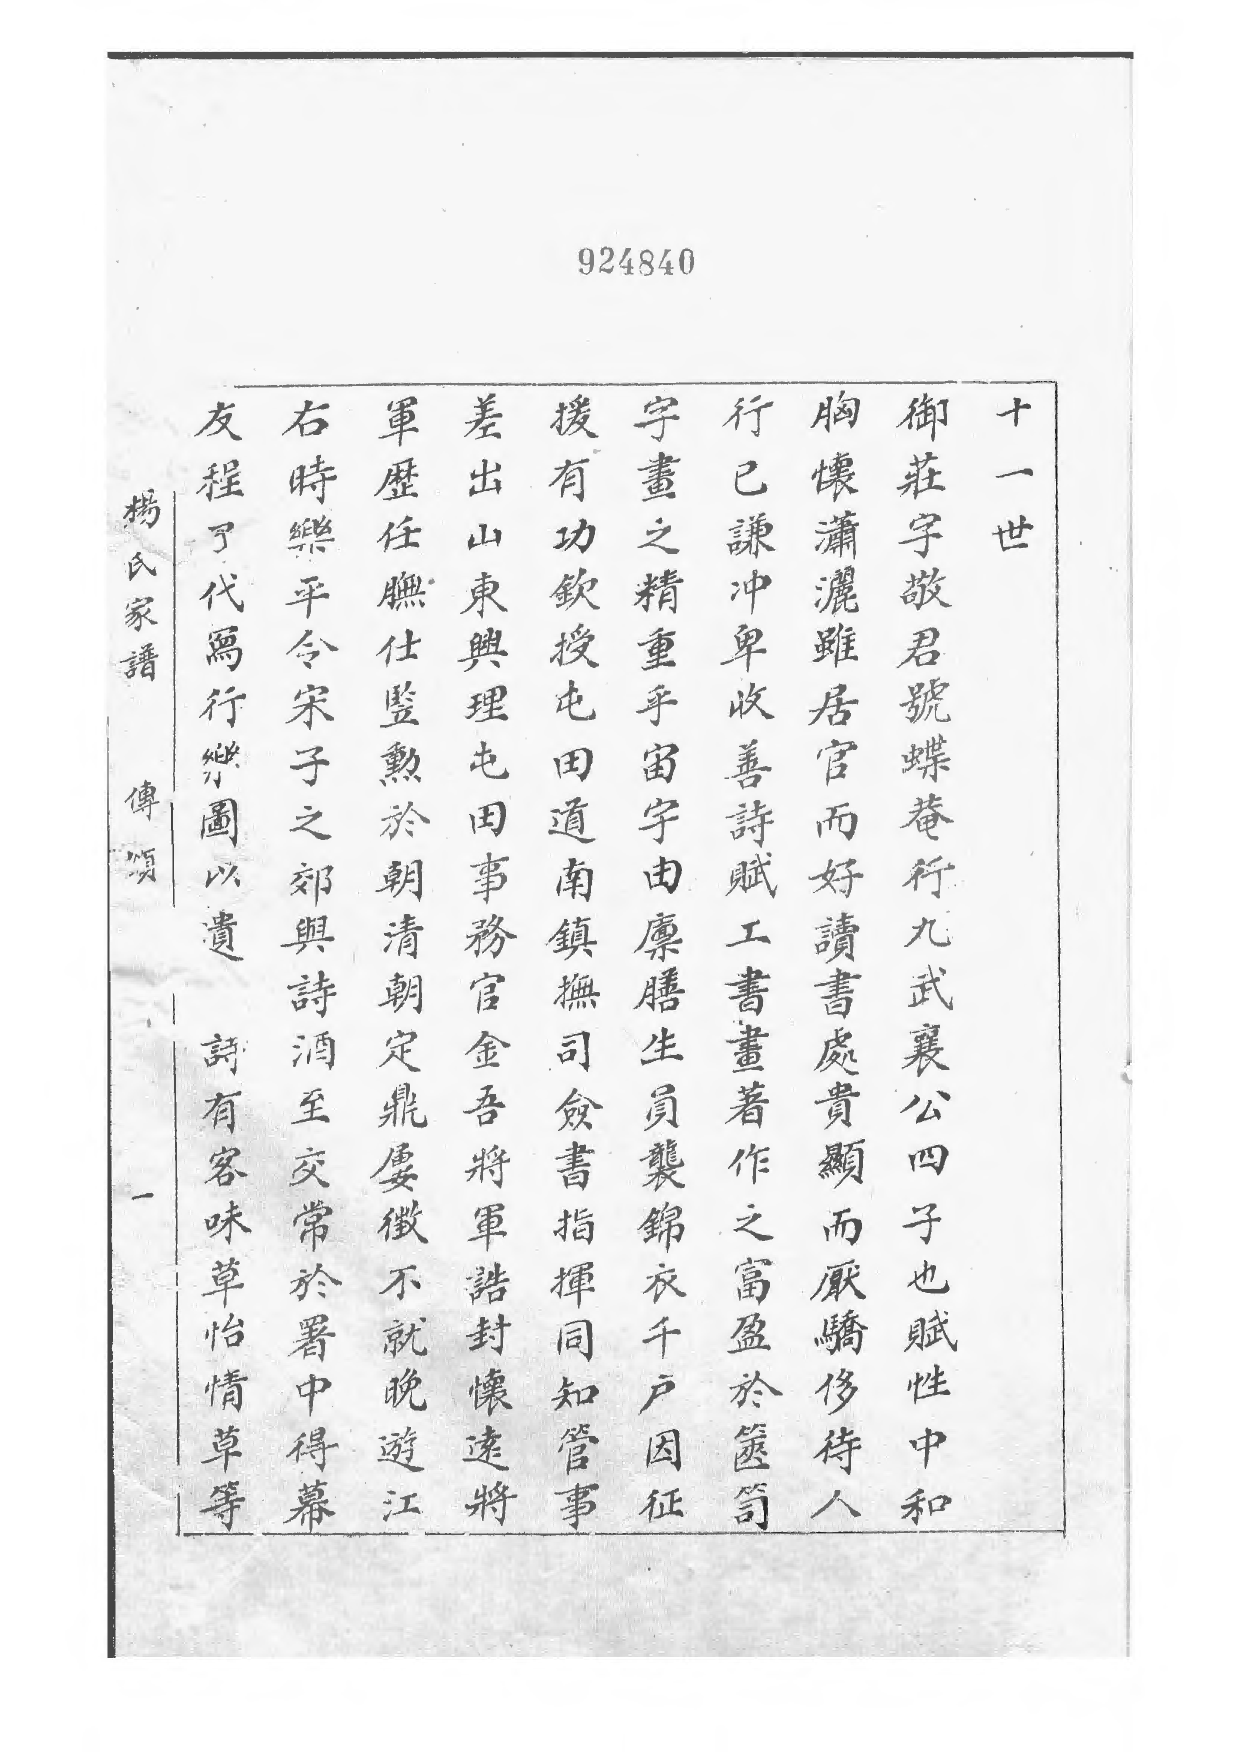 924840
十一世
御莊字敬君號蝶菴行九武襄公四子也賦性中和
胸懷瀟灑雖居官而好讀書處貴顯而厭驕侈待人
行已謙冲卑收善詩賦工書畫著作之富盈於篋笥
字畫之精重乎宙字由廩膳生員襲錦衣千户因征
援有功欽授屯田道南鎮撫司僉書指揮同知管事
差出山東興理屯田事務官金吾將軍誥封懷遠將
軍歷任膴仕監勲於朝清朝定鼎屢徵不就晚遊江
右時樂平令宋子之郊與詩酒至交常於署中得幕
友程了代寫行樂圖以遺 詩有客味草怡情草等
楊氏家譜 傳頌 一